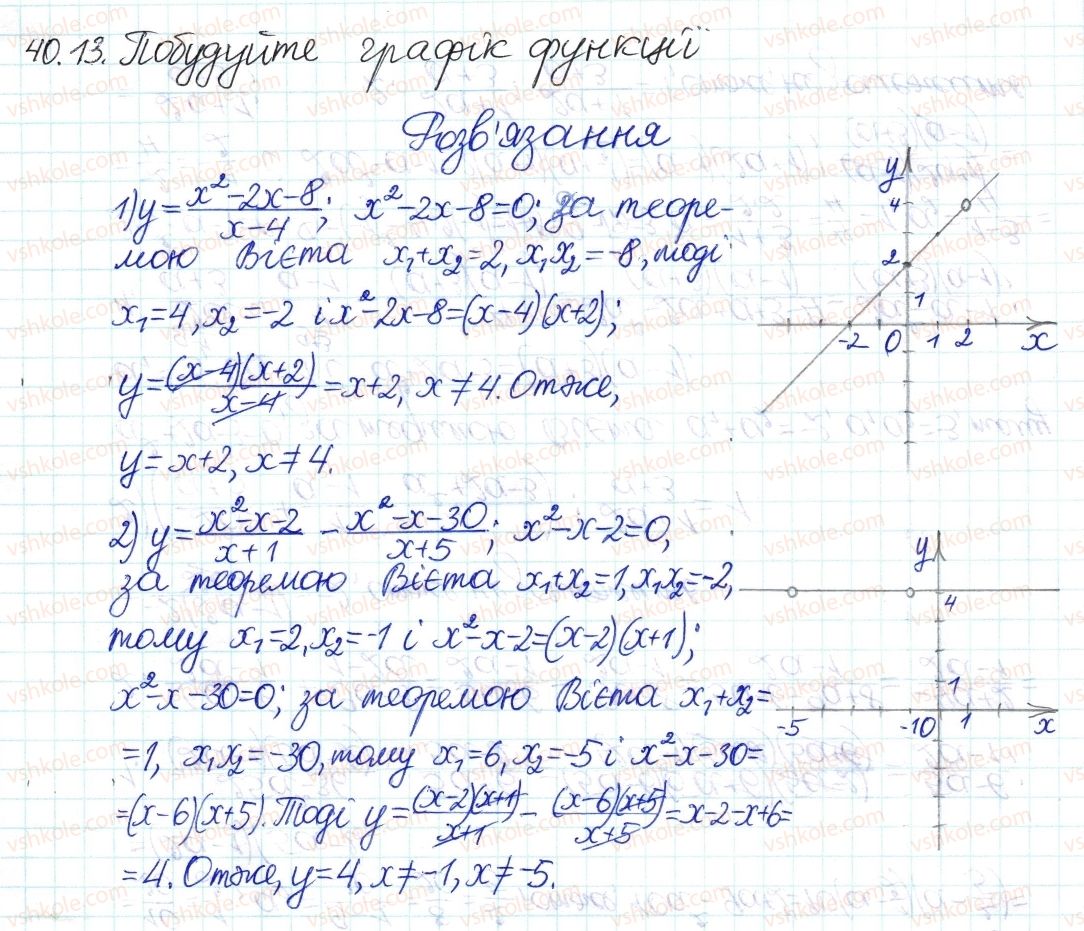 40.13. Побудуйте графік функції
Розв'язання
1) y = (x²-2x-8)/(x-4); x²-2x-8=0; за теоре-
мою Вієта x₁+x₂=2, x₁x₂=-8, тоді
x₁=4, x₂=-2 і x²-2x-8=(x-4)(x+2);
y = ((x-4)(x+2))/(x-4) = x+2, x≠4. Отже,
y = x+2, x≠4.
y
4
2
1
-2 0 1 2 x
2) y = (x²-x-2)/(x+1) - (x²-x-30)/(x+5); x²-x-2=0,
за теоремою Вієта x₁+x₂=1, x₁x₂=-2,
тому x₁=2, x₂=-1 і x²-x-2=(x-2)(x+1);
x²-x-30=0; за теоремою Вієта x₁+x₂=
=1, x₁x₂=-30, тому x₁=6, x₂=-5 і x²-x-30=
=(x-6)(x+5). Тоді y = ((x-2)(x+1))/(x+1) - ((x-6)(x+5))/(x+5) = x-2-x+6=
=4. Отже, y=4, x≠-1, x≠-5.
y
4
1
-5 -1 0 1 x
vshkole.com